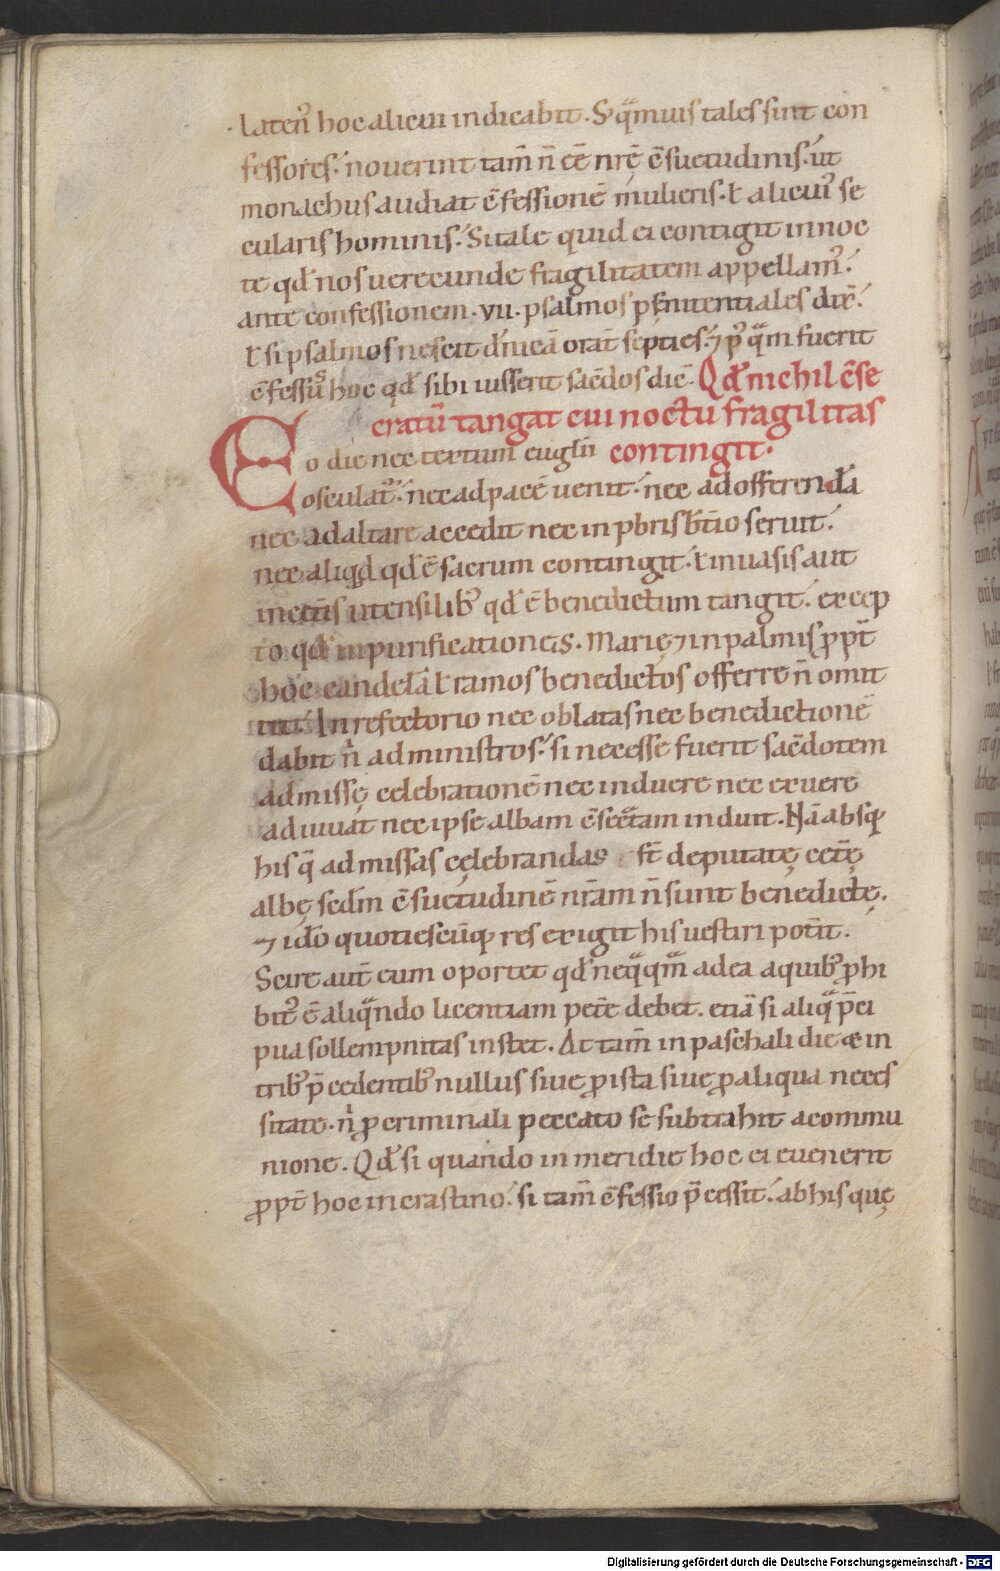 lateñ hoc alicui indicabit. S; qͣmuis tales sint con
fessores. nouerint tam̄ n̄ ēe nr̄ę ↄ̄suetudinis. ut
monachus audiat ↄ̄fessionē mulieris. ł alicui᷒ se
cularis hominis. Si tale quid ei contigit in noc
te qđ nos uerecunde fragilitatem appellam᷒.
ante confessionem .vii. psalmos pęnitentiales diĉ.
ł si psalmos nescit dn̄icā orat̄ septies. ⁊ p᷒qͣm fuerit
ↄ̄fessus hoc qđ sibi iusserit sac̄dos dic̄. Qđ nichil ↄ̄se
cratū tangat cui noctu fragilitas
Eo die nec textum eugl̄ii contingit.
osculat᷒. nec ad pacē uenit. nec ad offerenda
nec ad altare accedit nec in pb̄ris b̄tio seruit.
nec aliqd qđ ē sacrum contingit. ł in uasis aut
in cet̄is utensilib᷒ qđ ē benedictum tangit. excep
to qđ in purificatione S. Marię ⁊ in palmis ꝓpt̄
hoc candelā ł ramos benedictos offerre n̄ omit
tit. In refectorio nec oblatas nec benedictionē
dabit n̄ ad ministros. si necesse fuerit sac̄dotem
ad missę celebrationē nec induere nec exuere
adiuuat nec ipse albam ↄ̄secͣtam induit. Nā absq;
his q̄ ad missas cęlebrandas st̄ deputatę cet̄ę
albę scdm̄ ↄ̄suetudinē nr̄am n̄ sunt benedictę.
⁊ ido quotiescūq; res exigit his uestiri pot̄it.
Scire aut̄ eum oportet qđ neqͣqͣm adea a quib᷒ ꝓhi
bit᷒ ē aliqͣndo licentiam pet̄e debet. etiā si aliqͣ p̄ci
pua sollempnitas instet. At tam̄ in paschali die & in
trib᷒ p̄cedentib᷒ nullus siue ꝓ ista siue ꝓ aliqua neces
sitate. n̄ ꝓ criminali peccato se subtrahit a commu
nione. Qđ si quando in meridie hoc ei euenerit
ꝓpt̄ hoc in crastino. si tam̄ ↄ̄fessio p̄cessit. ab his quę
Digitalisierung gefördert durch die Deutsche Forschungsgemeinschaft - DFG